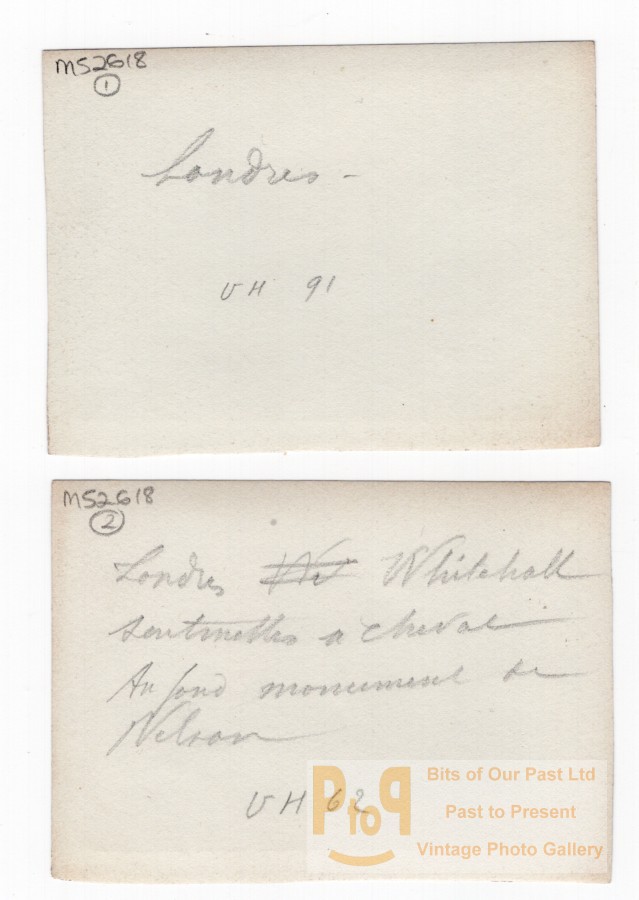 MS2618
1
Londres -
UH 91
MS2618
2
Londres We Whitehall
Sentinelles a cheval
Au fond monument de
Nelson
UH 62
PtoP
Bits of Our Past Ltd
Past to Present
Vintage Photo Gallery